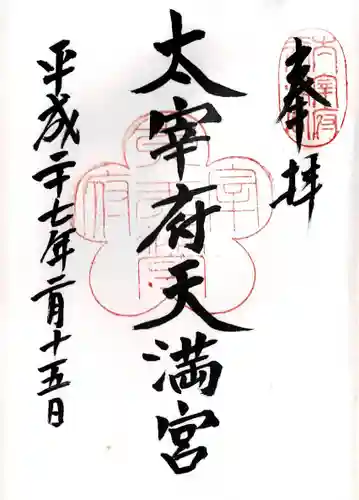 奉拝
太宰府天満宮
平成二十七年二月十五日